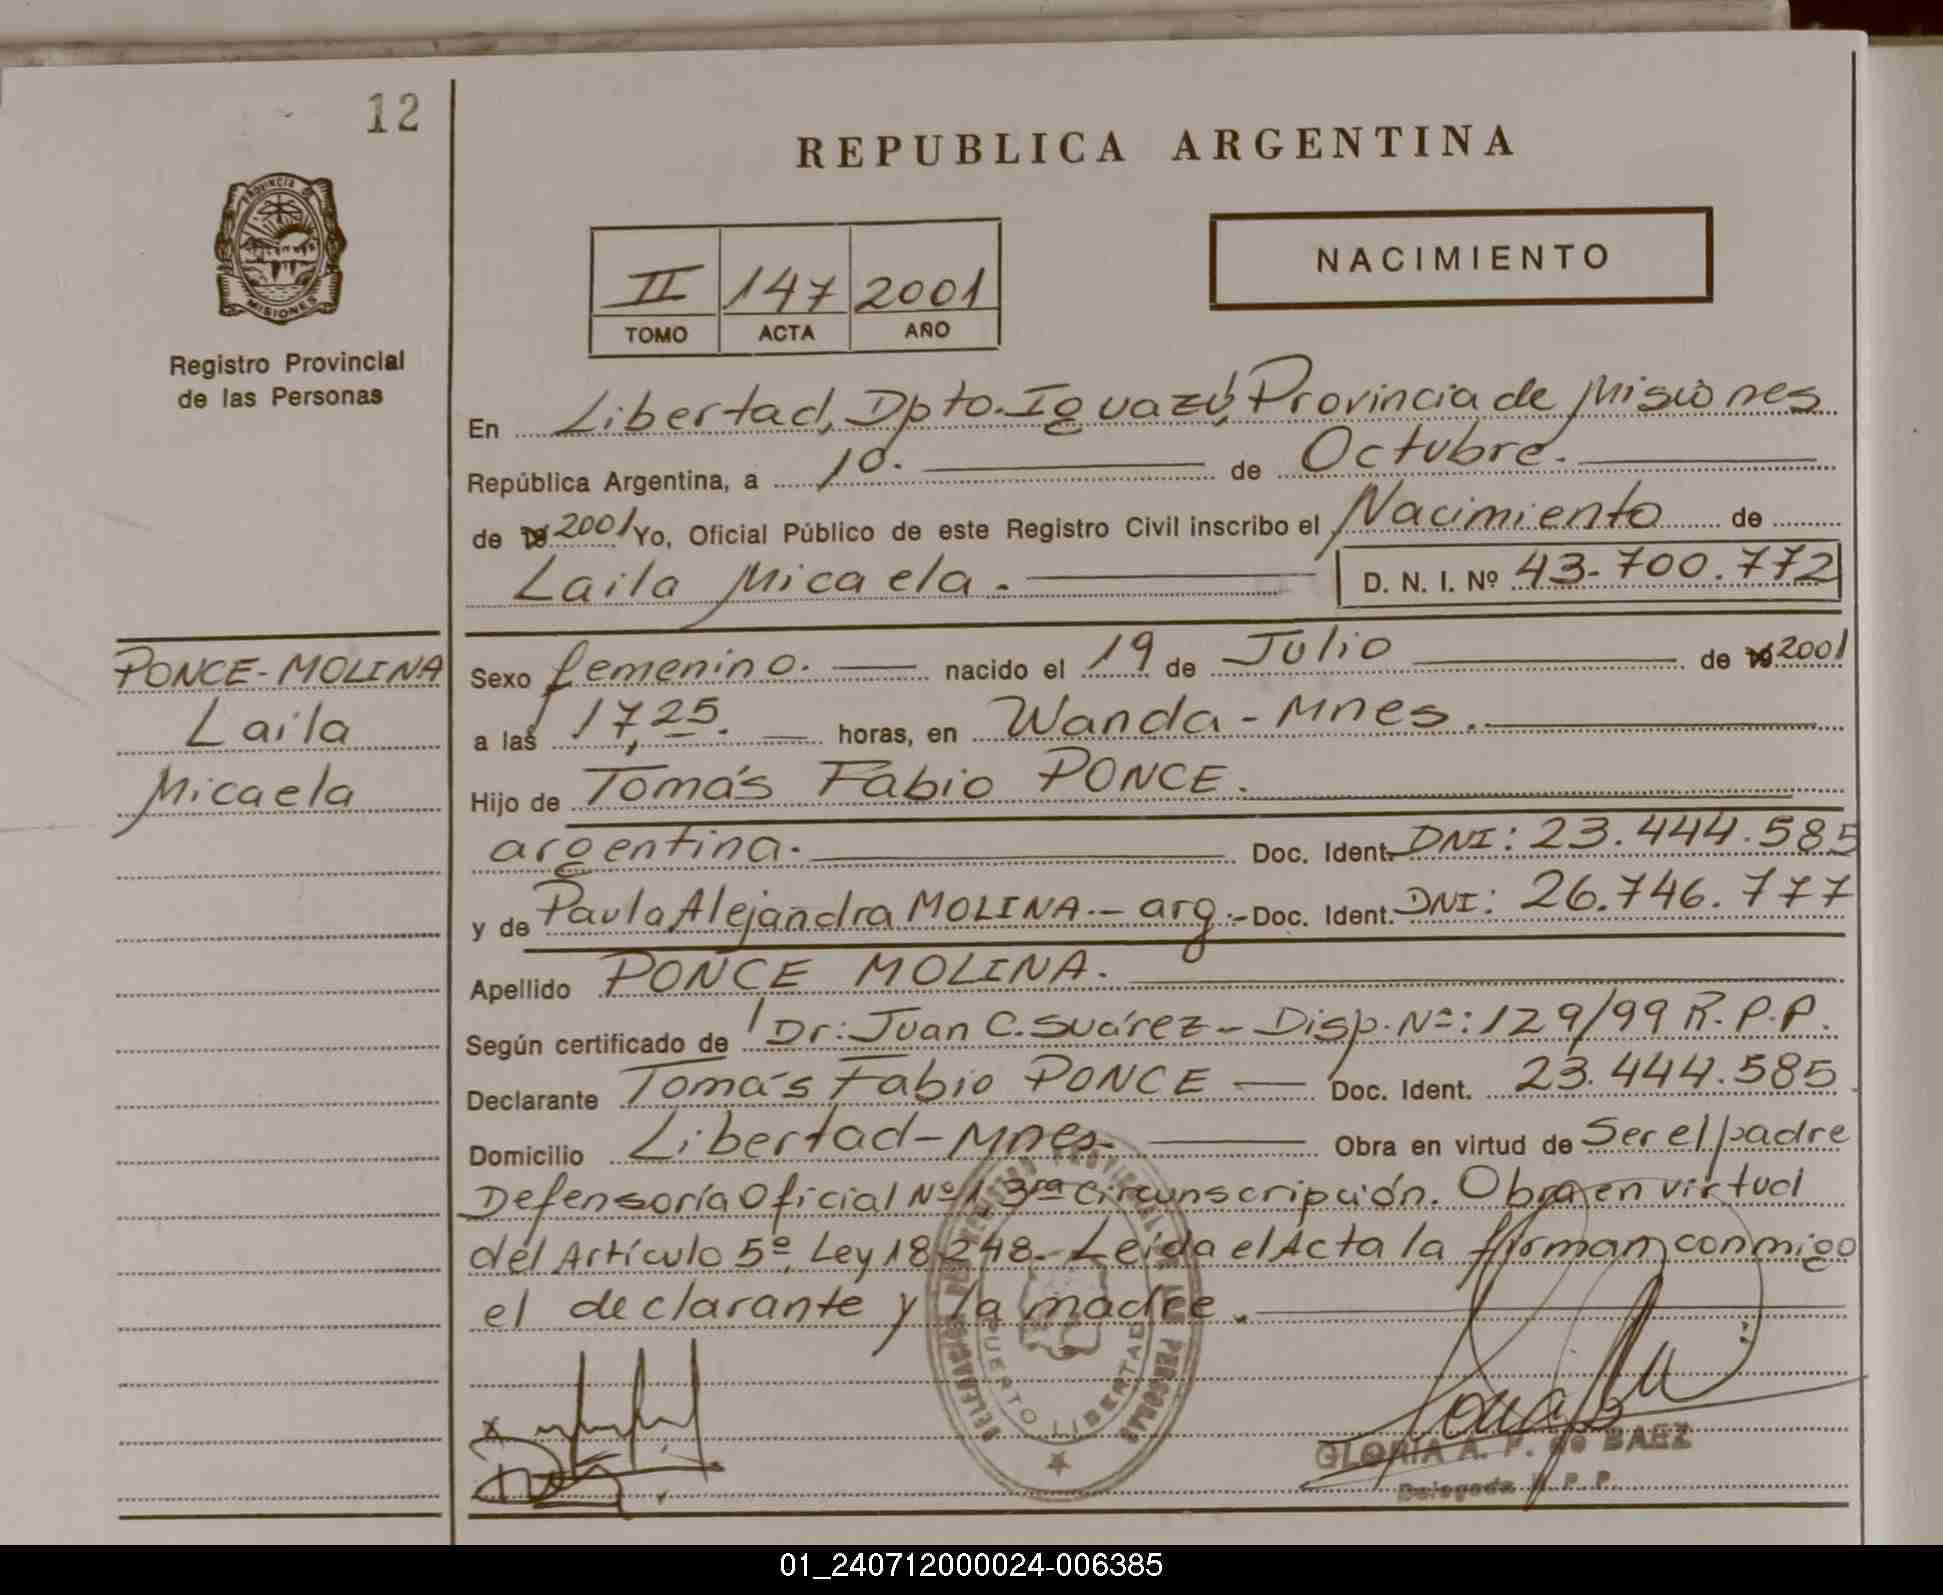 12
REPUBLICA ARGENTINA
PROVINCIA DE
MISIONES
Registro Provincial
de las Personas
NACIMIENTO
II 147 2001
TOMO ACTA AÑO
En Libertad, Dpto. Iguazú, Provincia de Misiones
República Argentina, a 10. de Octubre.
de 19 2001 Yo, Oficial Público de este Registro Civil inscribo el Nacimiento de
Laila Micaela. D. N. I. Nº 43.700.772
PONCE-MOLINA
Laila
Micaela
Sexo femenino. nacido el 19 de Julio de 19 2001
a las 17,25. horas, en Wanda - Mnes.
Hijo de Tomás Fabio PONCE.
argentina. Doc. Ident. DNI: 23.444.585
y de Paula Alejandra MOLINA.- arg.- Doc. Ident. DNI: 26.746.777
Apellido PONCE MOLINA.
Según certificado de Dr: Juan C. Suárez - Disp. Nº: 129/99 R.P.P.
Declarante Tomás Fabio PONCE Doc. Ident. 23.444.585
Domicilio Libertad - Mnes. Obra en virtud de Ser el padre
Defensoría Oficial Nº 1, 3ra Circunscripción. Obra en virtud
del Artículo 5º, Ley 18.248. Leída el Acta la firman conmigo
el declarante y la madre.
PUERTO LIBERTAD
GLORIA A. P. de BAEZ
Delegada R. P. P.
01_240712000024-006385